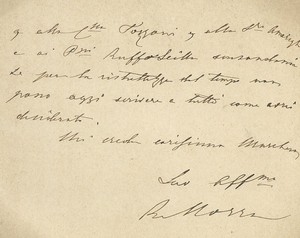 e alla C.ssa Tozzoni e alla
e ai P.ni Ruffo Scilla scusandomi
se per la ristrettezza del tempo non
posso oggi scrivere a tutti come avrei
desiderato.
Mi creda carissima Marchesa
Suo aff.mo